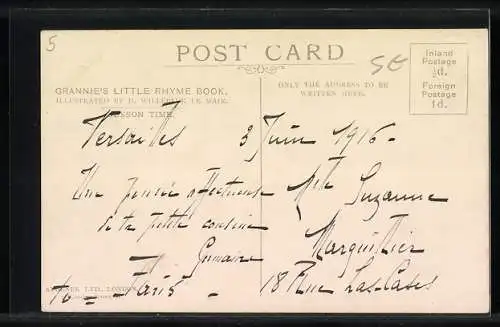 5
POST CARD
SE
Inland
Postage
½d.
Foreign
Postage
1d.
GRANNIE'S LITTLE RHYME BOOK.
ILLUSTRATED BY H. WILLEBEEK LE MAIR.
LESSON TIME.
ONLY THE ADDRESS TO BE
WRITTEN HERE.
Versailles 3 Juin 1916 -
Une pensée affectueuse
de ta petite cousine
Germaine
Mlle Suzanne
Marguillier
18 Rue Las-Cases
Paris
AUGENER LTD. LONDON.